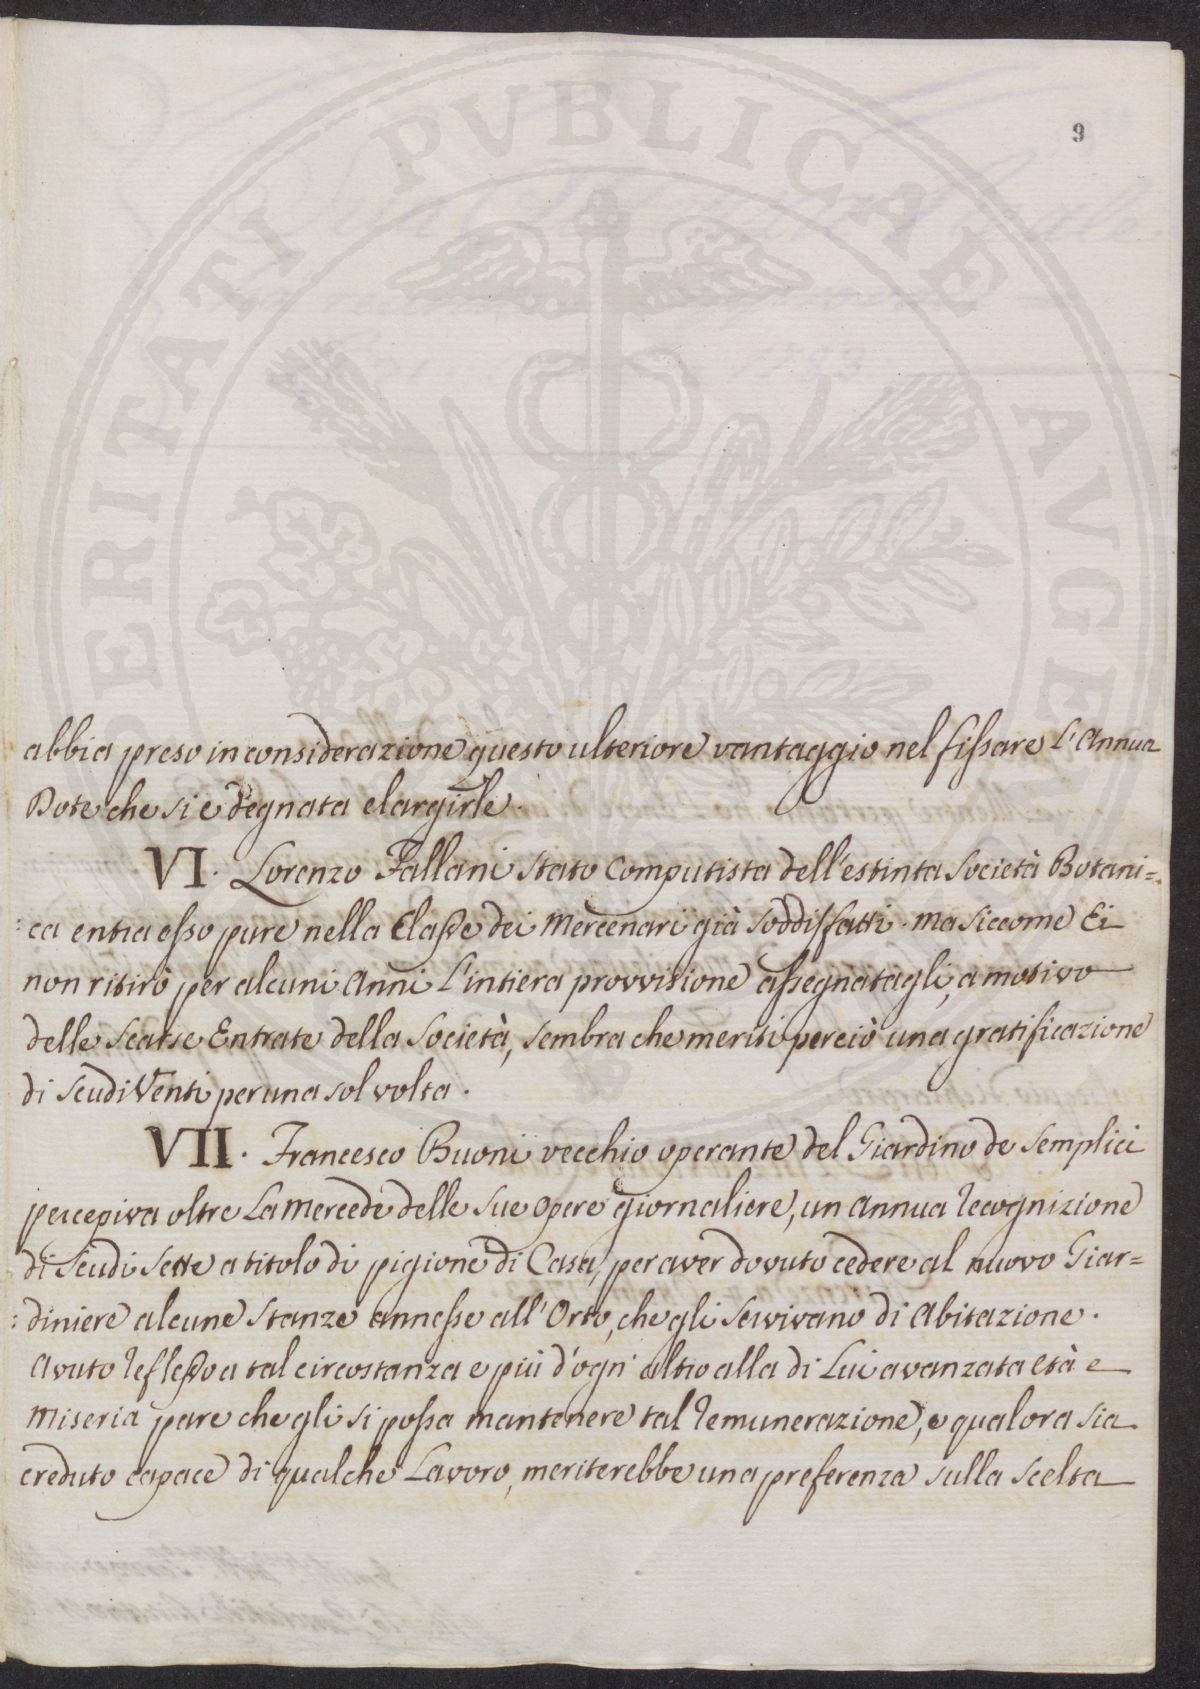 9
PROSPERITATI PUBLICAE AVGENDAE
abbia preso in considerazione questo ulteriore vantaggio nel fissare l'Annua
Dote che si è degnata elargirle.
VI. Lorenzo Fallani stato Computista dell'estinta Società Botani=
:ca entra esso pure nella Classe dei Mercenarj già soddisfatti. ma siccome Ei
non ritirò per alcuni Anni l'intiera provvisione assegnatagli, a motivo
delle scarse Entrate della Società, sembra che meriti perciò una gratificazione
di scudi Venti per una sol volta.
VII. Francesco Buoni vecchio operante del Giardino de semplici
percepiva oltre La Mercede delle sue opere giornaliere, un annua recognizione
di scudi sette a titolo di pigione di Casa, per aver dovuto cedere al nuovo Giar=
:diniere alcune stanze annesse all'Orto, che gli servivano di Abitazione.
Avuto reflesso a tal circostanza e più d'ogn' altro alla di Lui avanzata età e
Miseria pare che gli si possa mantenere tal remunerazione, e qualora sia
creduto capace di qualche Lavoro, meriterebbe una preferenza sulla scelta